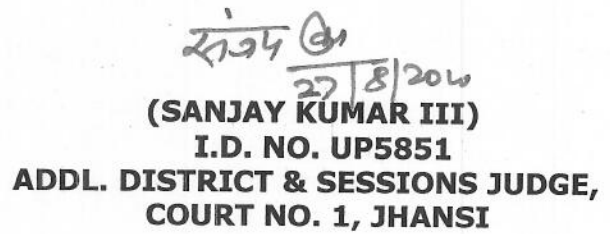 संजय
27/8/2020
(SANJAY KUMAR III)
I.D. NO. UP5851
ADDL. DISTRICT & SESSIONS JUDGE,
COURT NO. 1, JHANSI